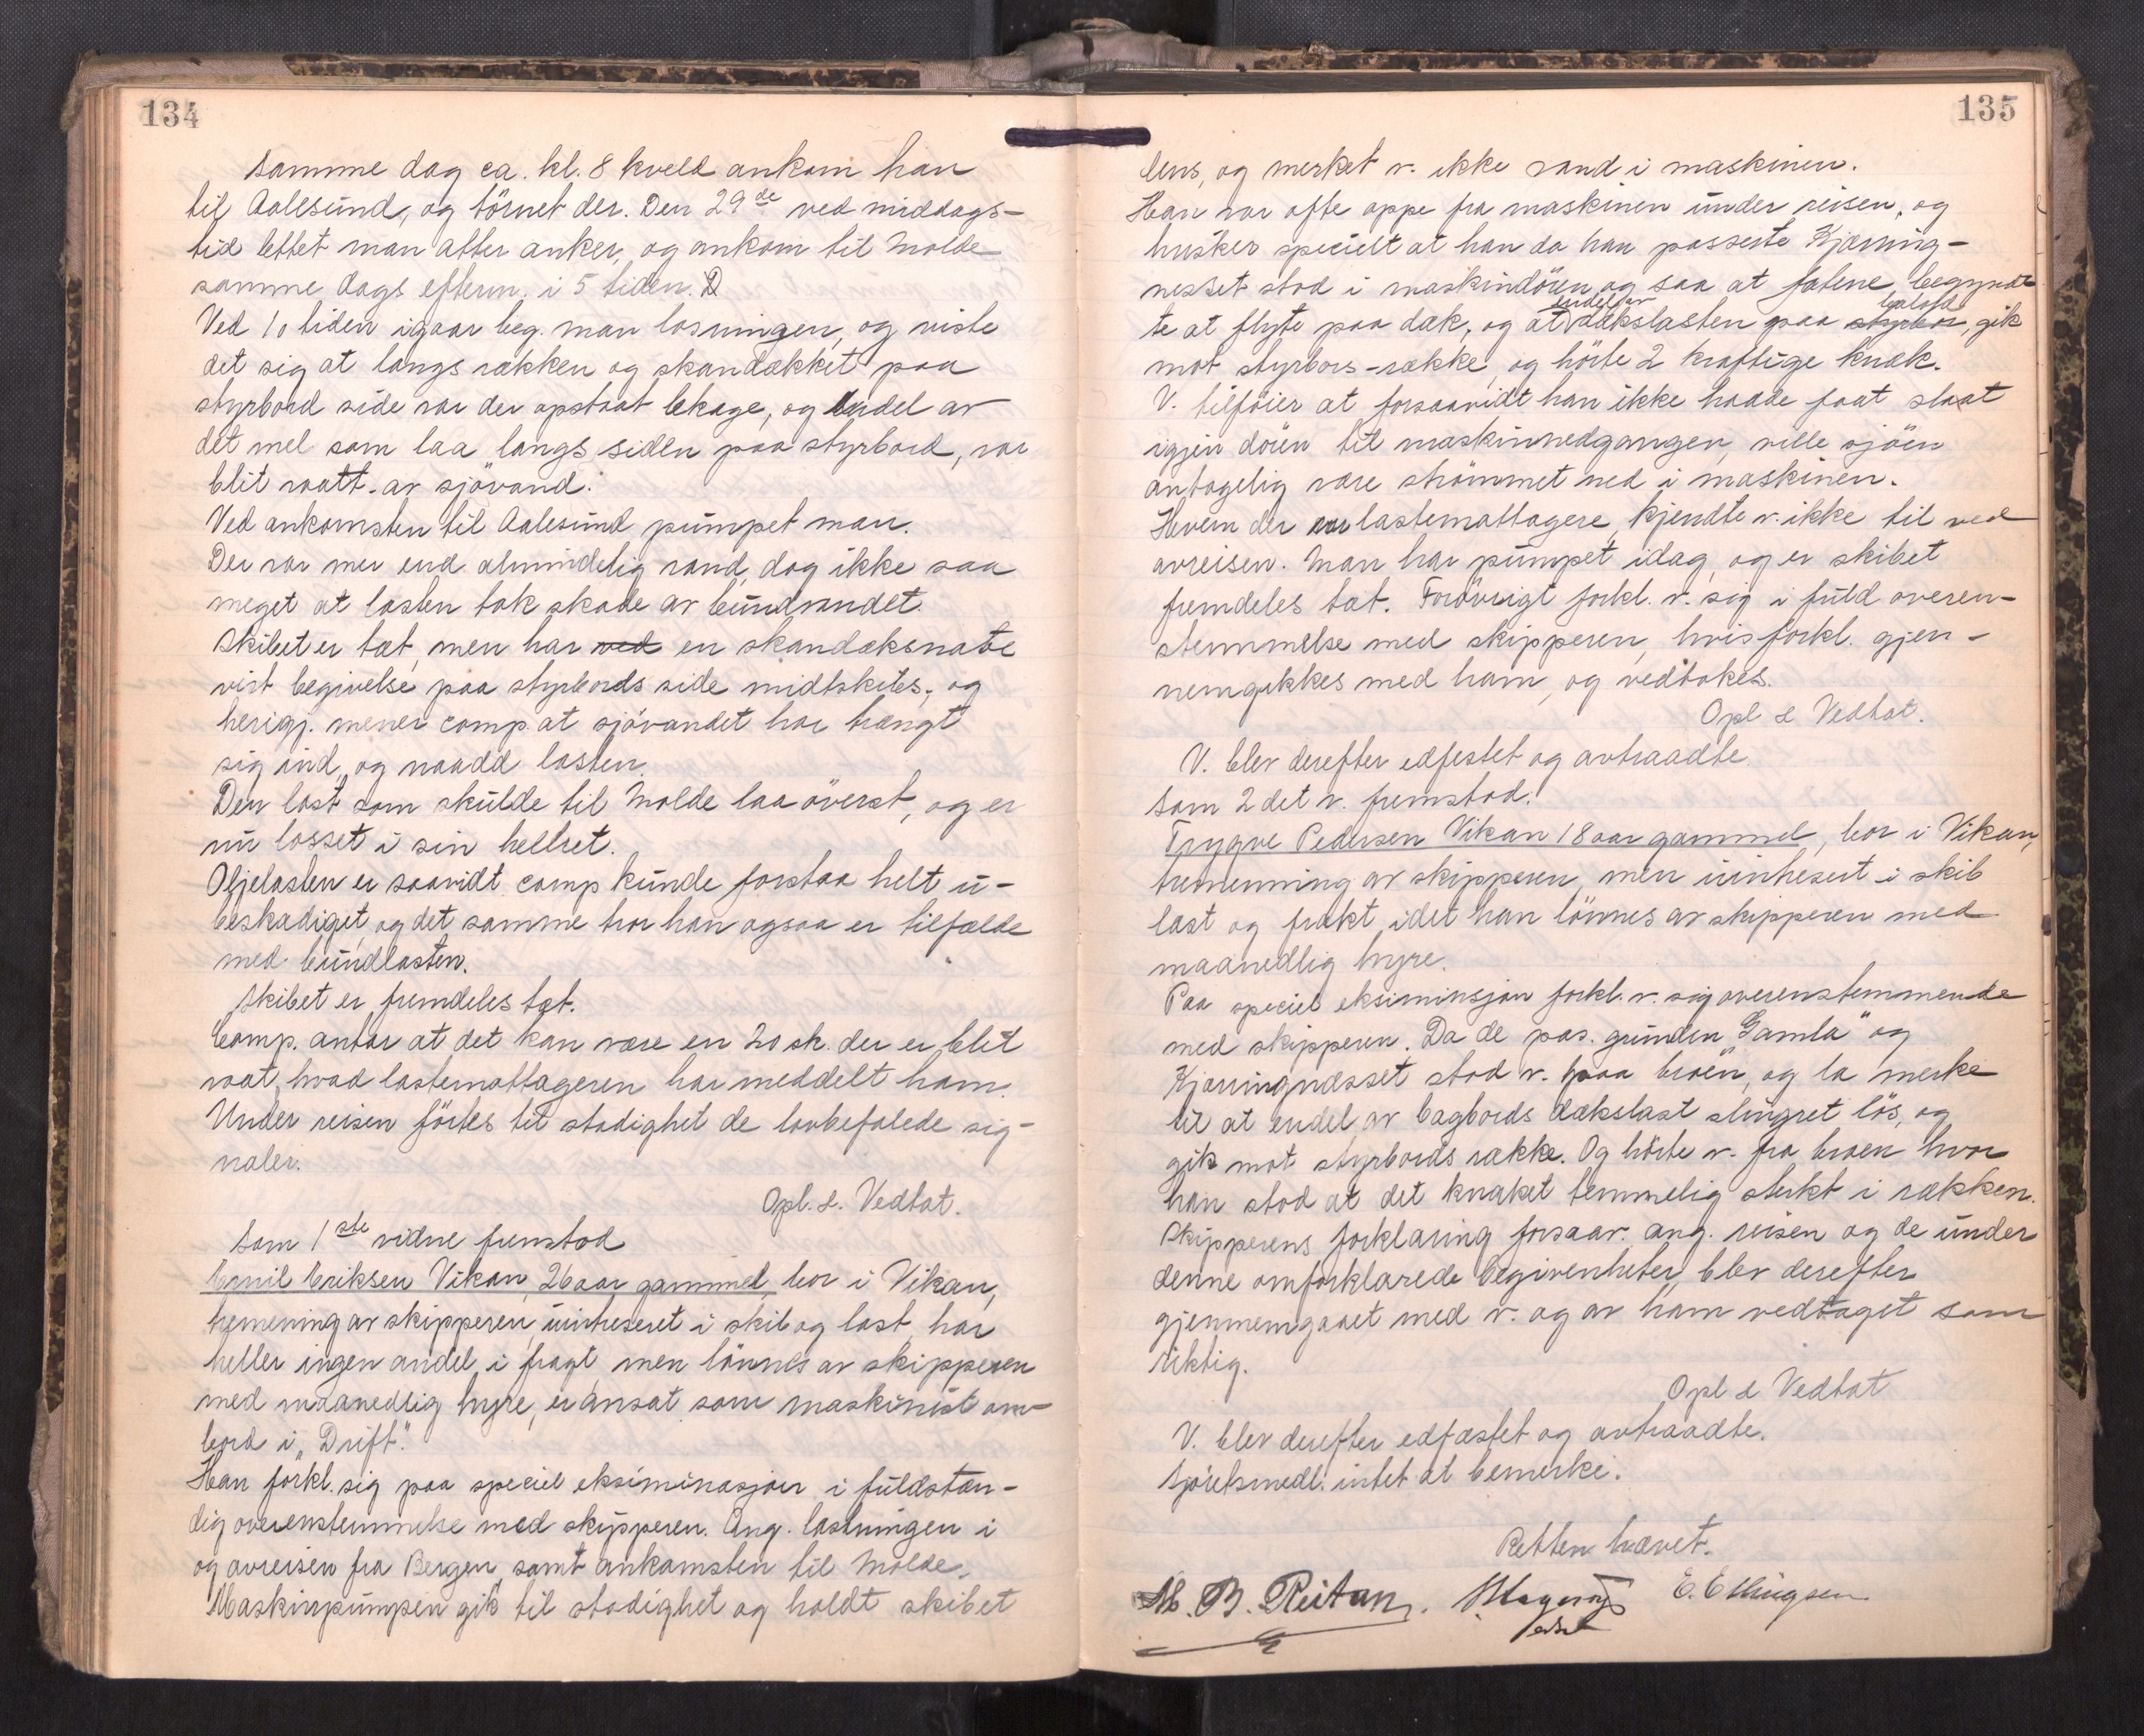 134
Samme dag ca. kl. 8 kveld ankom han
til Aalesund, og törnet der. Den 29de ved middags-
tid lettet man atter anker, og ankom til Molde
samme dags efterm. i 5 tiden. D
Ved 10 tiden igaar beg. man losningen, og viste
det sig at langs rækken og skandækket paa
styrbord side var der opstaat lekage, og endel av
det mel som laa langs siden paa styrbord, var
blit vaatt av sjövand.
Ved ankomsten til Aalesund pumpet man.
Der var mer end almindelig vand, dog ikke saa
meget at lasten tok skade av bundvandet.
Skibet er tæt, men har ved en skandæksnate
vist begivelse paa styrbords side midtskibs, og
herigj. mener comp. at sjövandet har trængt
sig ind, og naadd lasten.
Den last som skulde til Molde laa överst, og er
nu losset i sin helhet.
Oljelasten er saavidt comp kunde forstaa helt u-
beskadiget, og det samme tror han ogsaa er tilfælde
med bundlasten.
Skibet er fremdeles tæt.
Comp. antar at det kan være en 20 sk. der er blit
vaat, hvad lastemottageren har meddelt ham.
Under reisen förtes til stadighet de lovbefalede sig-
naler.
Opl. & Vedtat.
Som 1ste vidne fremstod
Emil Eriksen Vikan, 26 aar gammel, bor i Vikan,
tremening av skipperen, uinteseret i skib og last, har
heller ingen andel i fragt, men lönnes av skipperen
med maanedlig hyre, er ansat som maskinist om-
bord i "Drift".
Han forkl. sig paa speciel eksiminasjon i fuldstæn-
dig overenstemmelse med skipperen. Ang. lastningen i
og avreisen fra Bergen, samt ankomsten til Molde.
Maskinpumpen gik til stadighet og holdt skibet
135
lens, og merket v. ikke vand i maskinen.
Han var ofte oppe fra maskinen under reisen, og
husker specielt at han da han passerte Kjærring-
nesset stod i maskindören og saa at fatene begynd
te at flyte paa dæk, og at endel av dækslasten paa styrbor babord, gik
mot styrbors-række, og hörte 2 kraftige knæk.
V. tilföier at forsaavidt han ikke hadde faat slaat
igjen dören til maskinnedgangen, ville sjöen
antagelig være strömmet ned i maskinen.
Hvem der var lastemottagere, kjendte v. ikke til ved
avreisen. Man har pumpet idag, og er skibet
fremdeles tæt. Forövrigt forkl. v. sig i fuld overen-
stemmelse med skipperen, hvis forkl. gjen-
nemgikkes med ham, og vedtokes.
Opl & Vedtat.
V. blev derefter edfestet og avtraadte.
Som 2det v. fremstod:
Trygve Pedersen Vikan 18 aar gammel, bor i Vikan,
tremenning av skipperen, men uinteseret i skib
last og frakt, idet han lönnes av skipperen med
maanedlig hyre.
Paa speciel eksiminsjon forkl. v. sig overenstemmende
med skipperen. Da de pas. grunden "Gamla" og
Kjærringnæsset stod v. paa broen, og la merke
til at endel av bagbords dækslast slingret lös, og
gik mot styrbords række. Og hörte v. fra broen hvor
han stod at det knaket temmelig sterkt i rækken.
Skipperens forklaring forsaav. ang. reisen og de under
denne omforklarede begivenheter, blev derefter
gjennemgaaet med v. og av ham vedtaget som
riktig.
Opl & Vedtat
V. blev derefter edfæstet og avtraadte.
Sjöretsmedl. intet at bemerke.
Retten hævet.
M. B. Reitan. E. Ellingsen